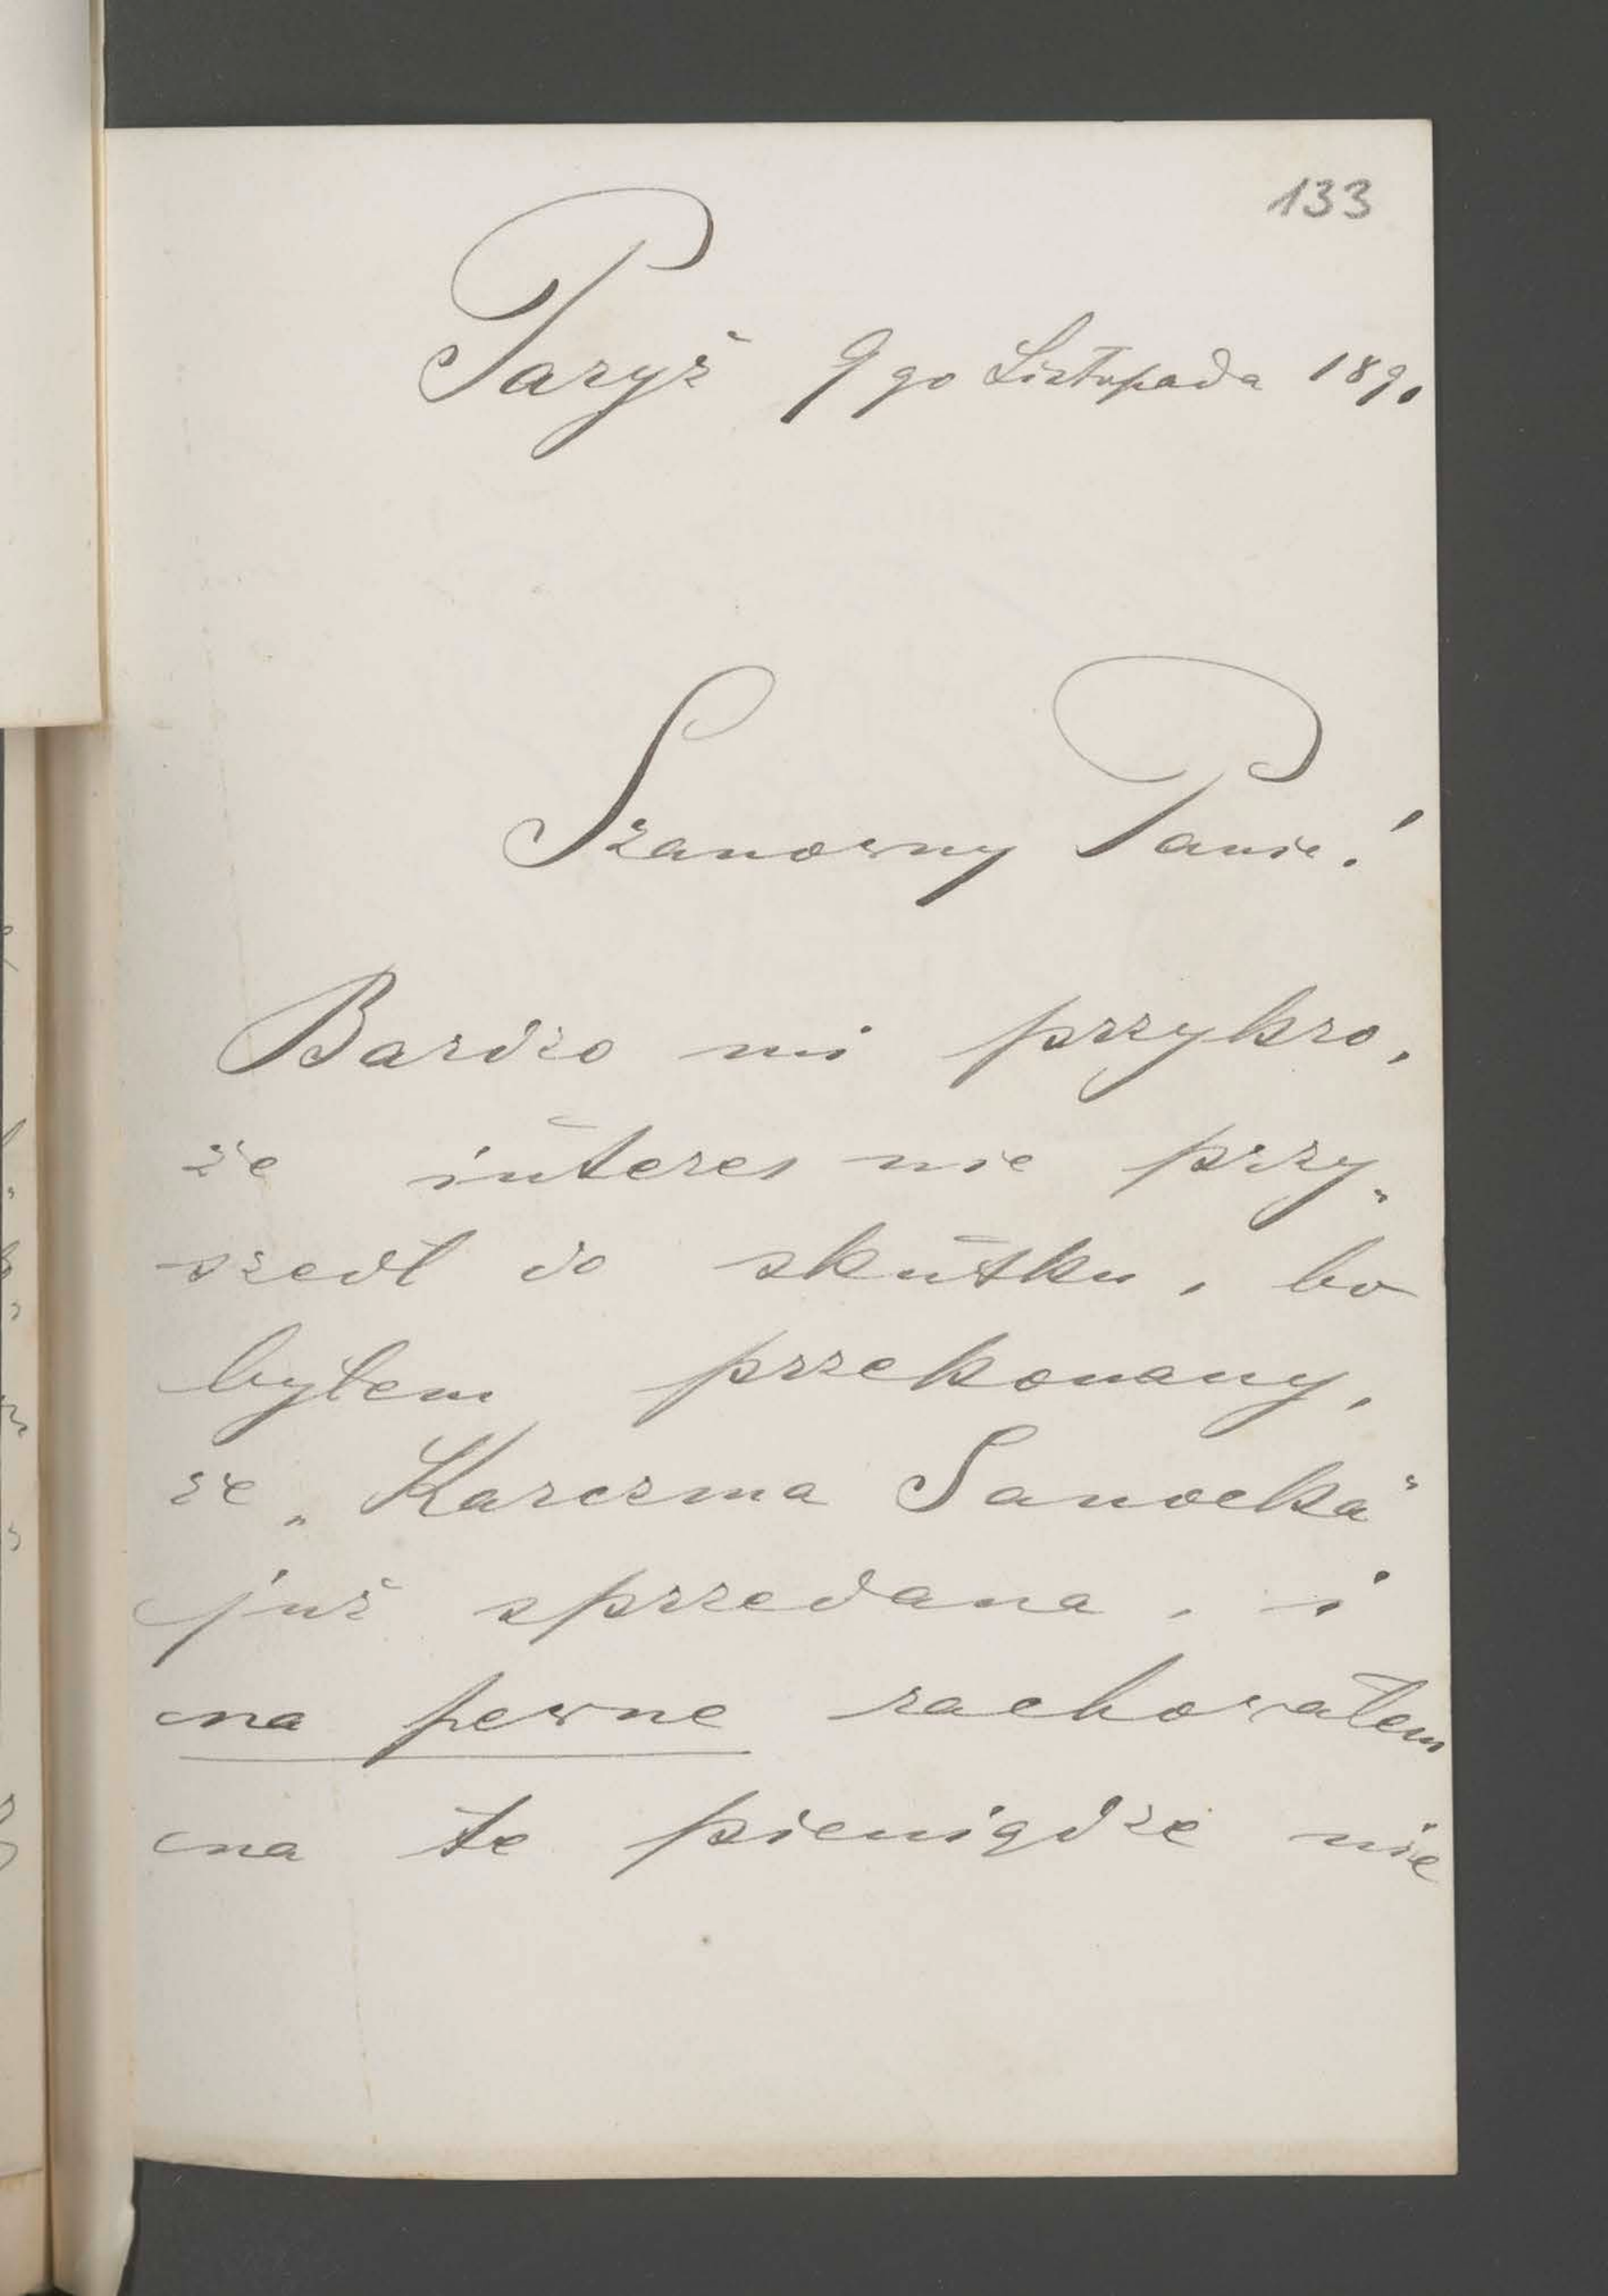 133
Paryż 9go Listopada 1890
Szanowny Panie!
Bardzo mi przykro,
że interes nie przy„
szedł do skutku, bo
byłem przekonany,
że „Karczma Sanocka"
już sprzedana, i
na pewne rachowałem
na te pieniądze nie